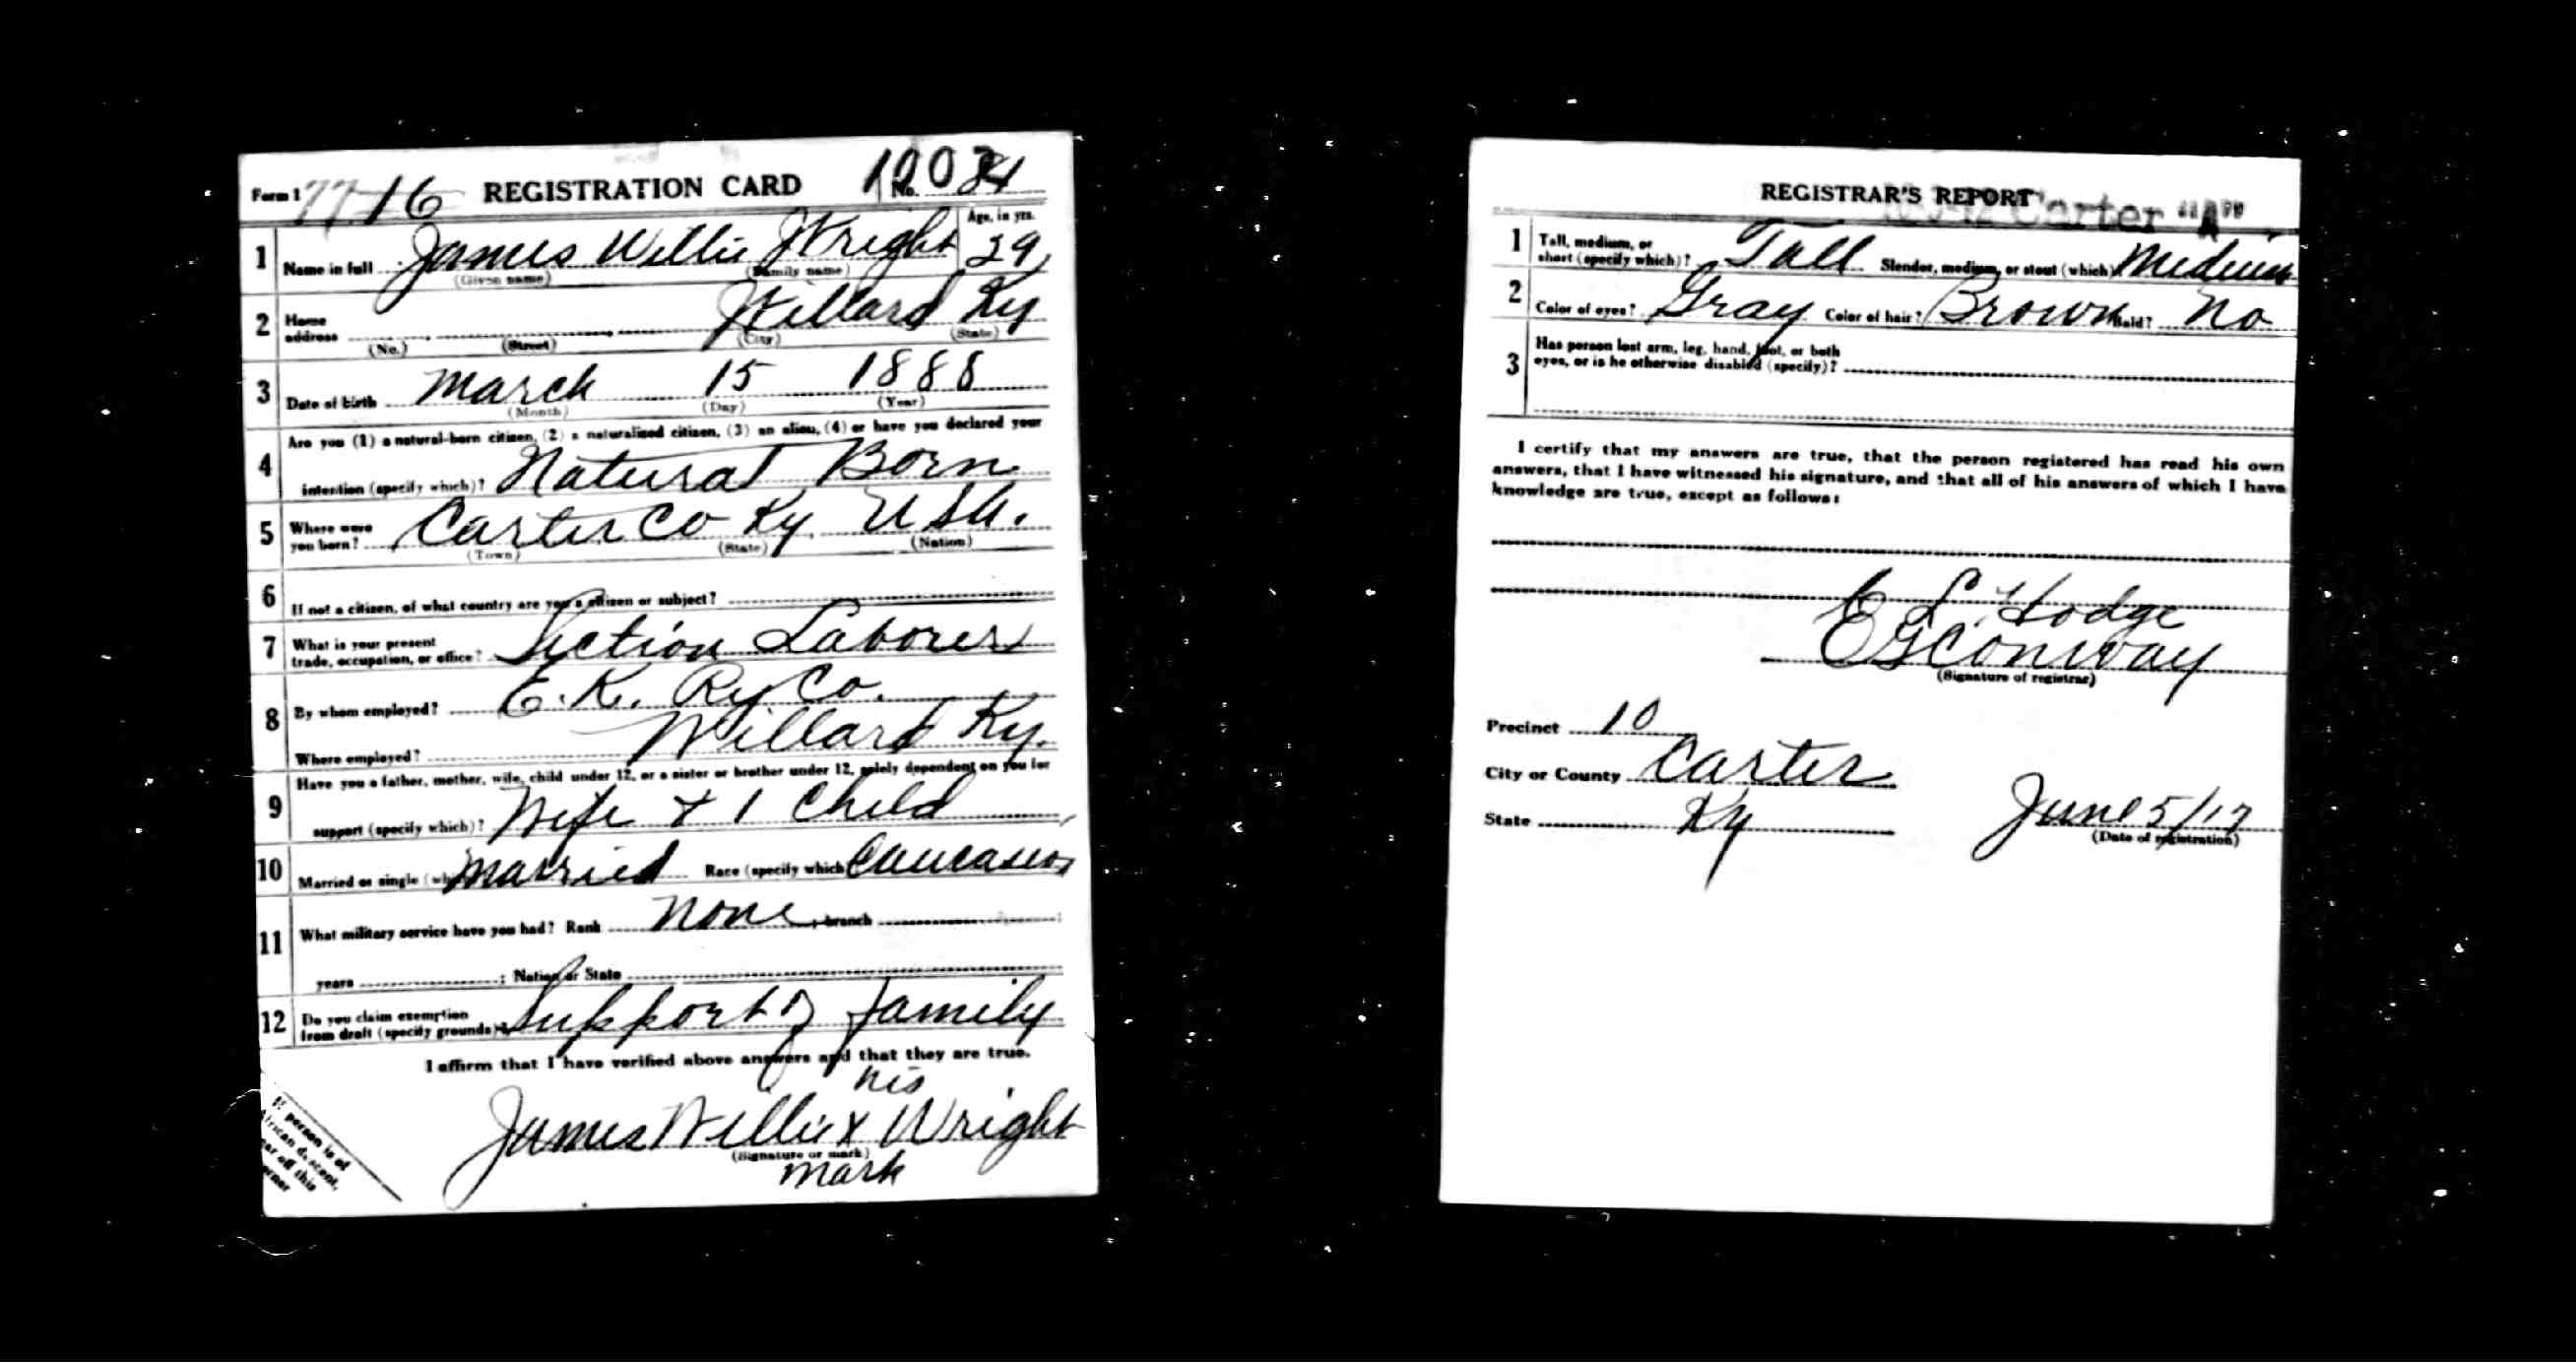 Form 1 REGISTRATION CARD No.
Age, in yrs.
1 Name in full James Willie Wright 29
(Given name) (Family name)
2 Home address Willard Ky
(No.) (Street) (City) (State)
3 Date of birth March 15 1888
(Month) (Day) (Year)
4 Are you (1) a natural-born citizen, (2) a naturalized citizen, (3) an alien, (4) or have you declared your
intention (specify which)? Natural Born
5 Where were you born? Carter Co Ky. USA.
(Town) (State) (Nation)
6 If not a citizen, of what country are you a citizen or subject?
7 What is your present trade, occupation, or office? Section Laborer
8 By whom employed? E. K. Ry Co.
Where employed? Willard Ky.
9 Have you a father, mother, wife, child under 12, or a sister or brother under 12, solely dependent on you for
support (specify which)? Wife & 1 Child
10 Married or single (which) Married Race (specify which) Caucasian
11 What military service have you had? Rank None; branch
years ; Nation or State
12 Do you claim exemption from draft (specify grounds)? Support of family
I affirm that I have verified above answers and that they are true.
his
James Willie X Wright
(Signature or mark)
mark
If person is of
African descent,
tear off this
corner
REGISTRAR'S REPORT
Carter "A"
1 Tall, medium, or short (specify which)? Tall Slender, medium, or stout (which) Medium
2 Color of eyes? Gray Color of hair? Brown Bald? No
3 Has person lost arm, leg, hand, foot, or both
eyes, or is he otherwise disabled (specify)?
I certify that my answers are true, that the person registered has read his own
answers, that I have witnessed his signature, and that all of his answers of which I have
knowledge are true, except as follows:
E L Hodge
E G Conway
(Signature of registrar)
Precinct 10
City or County Carter
State Ky June 5/17
(Date of registration)